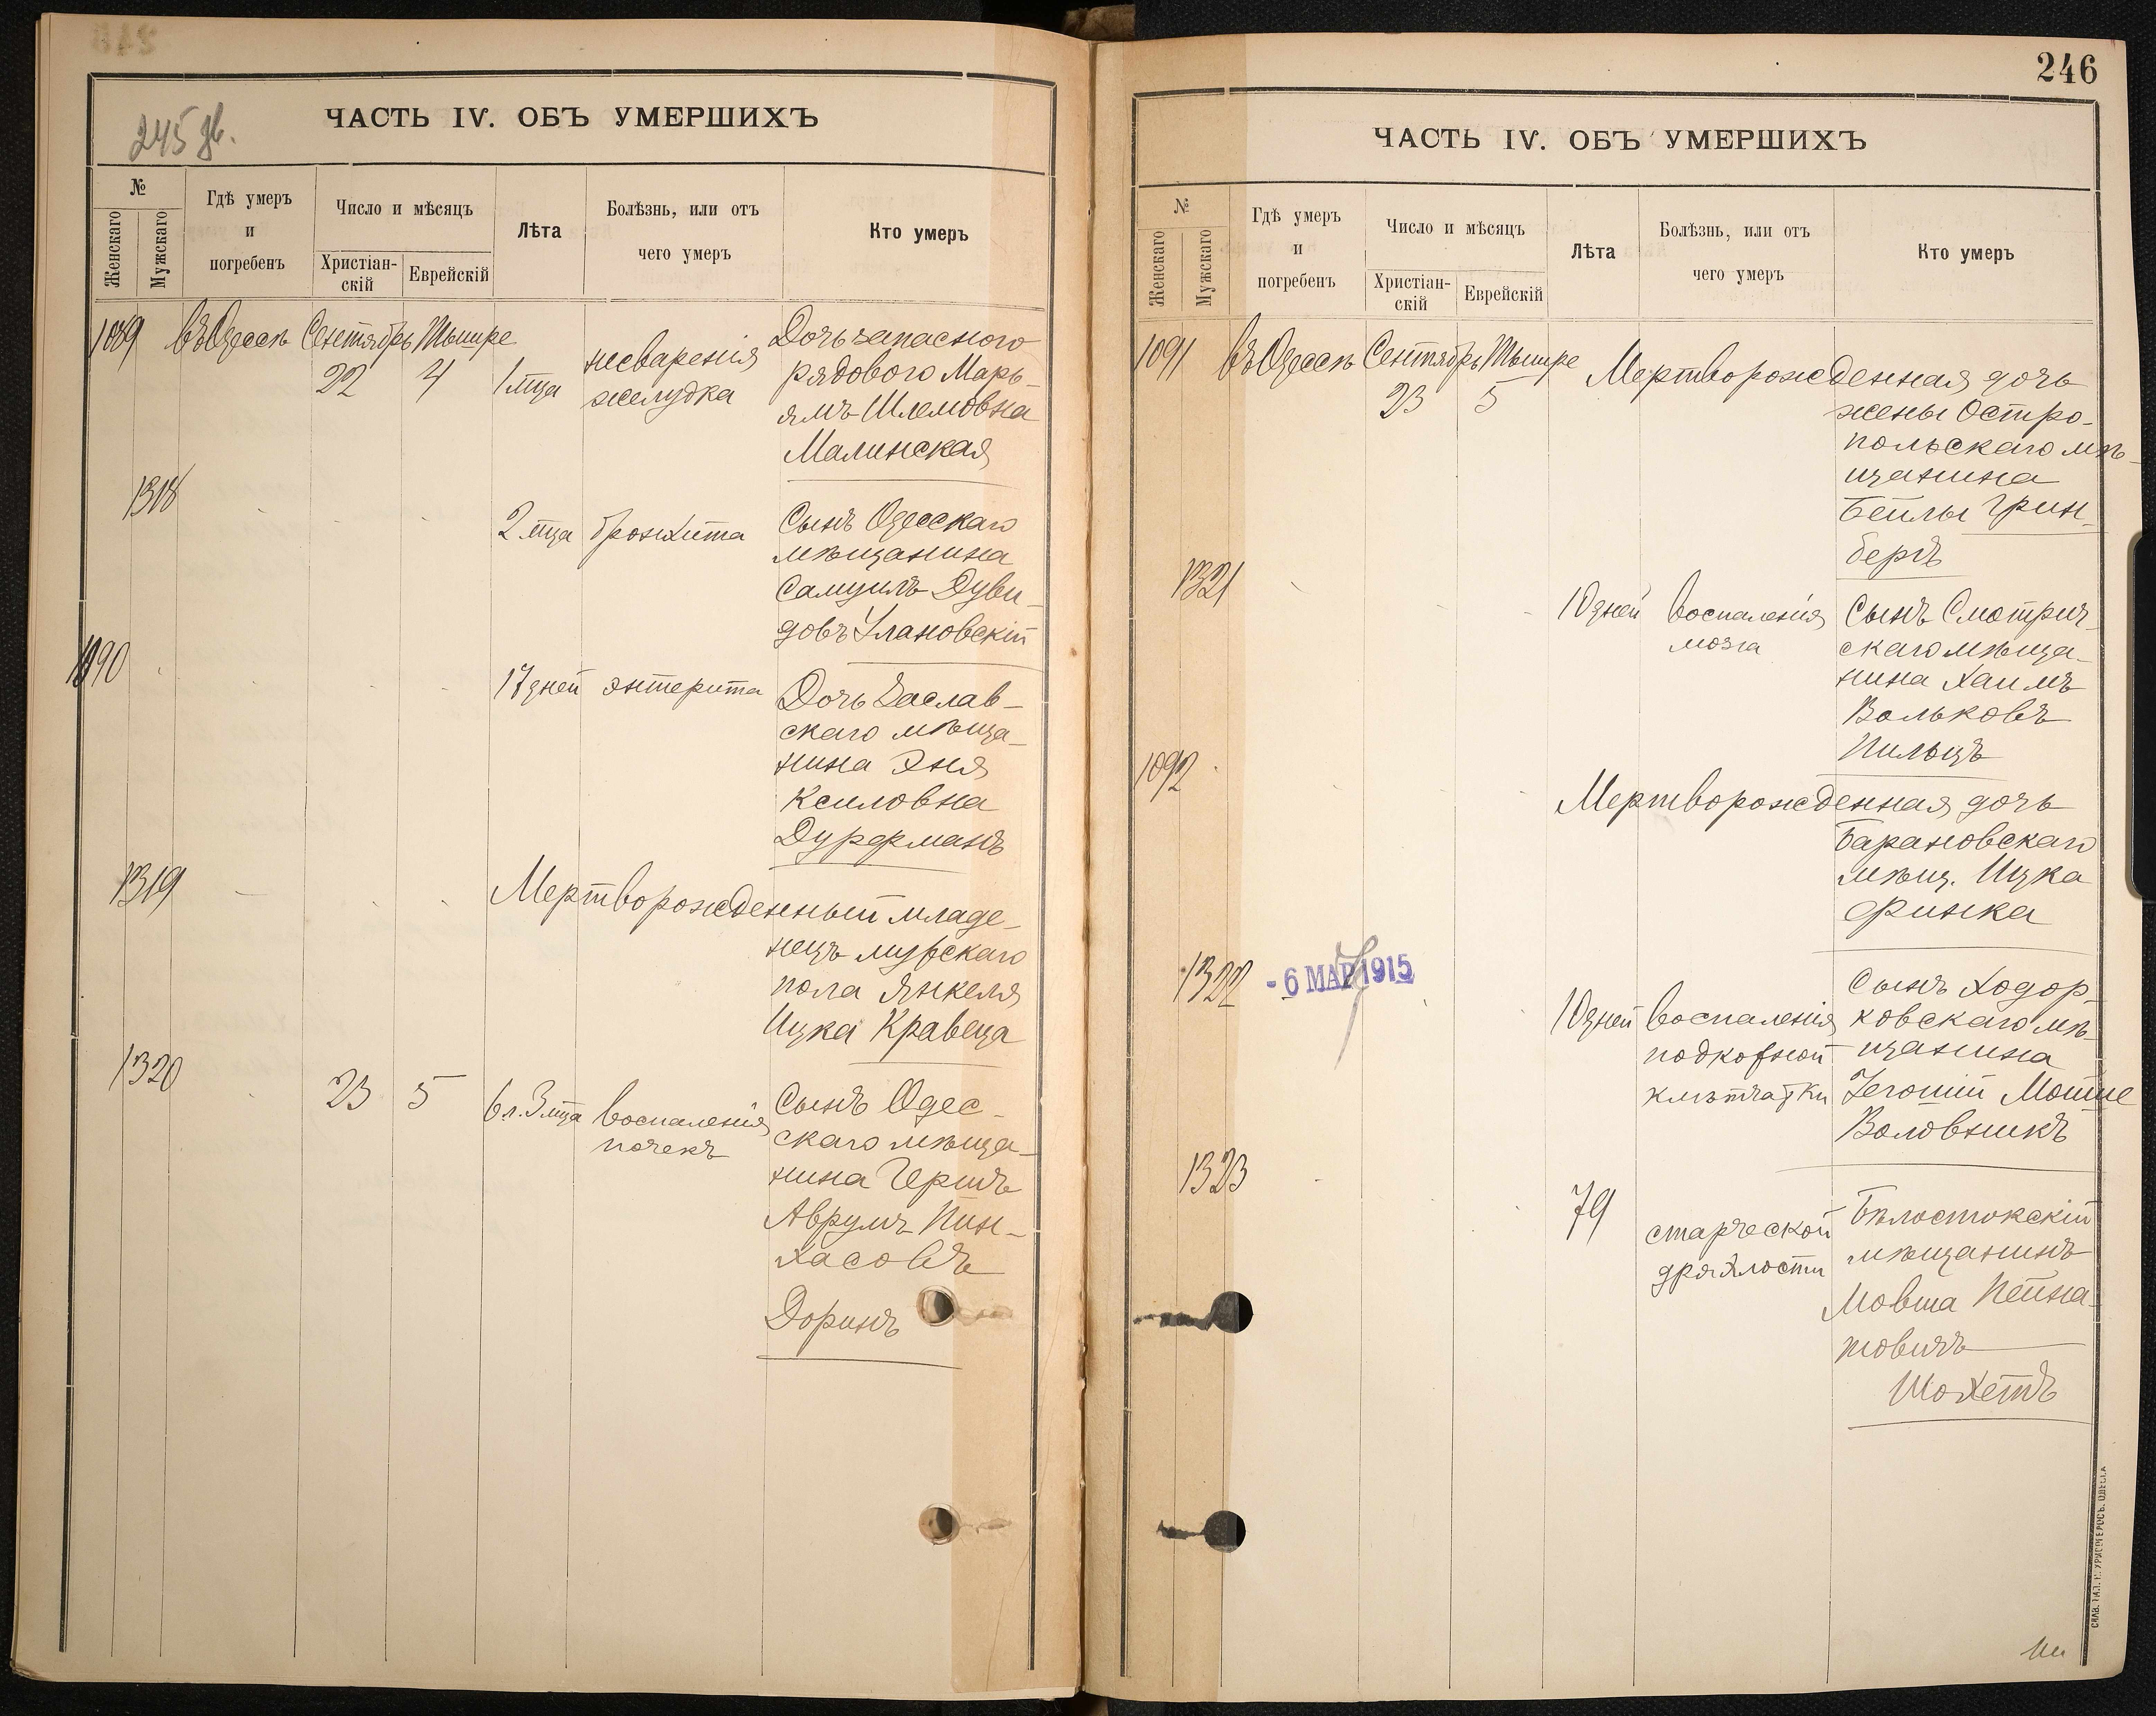 245 об.
ЧАСТЬ IV. ОБЪ УМЕРШИХЪ
№
Женскаго
Мужскаго
Гдѣ умеръ
и
погребенъ
Число и мѣсяцъ
Христіан-
скій
Еврейскій
Лѣта
Болѣзнь, или отъ
чего умеръ
Кто умеръ
1089 въ Одессѣ Сентябрь Тышре
22 4 1 мца
несваренія
желудка
Дочь запаснаго
рядового Марь-
ямъ Шлемовна
Малинская
1318
2 мца бронхита
Сынъ Одесскаго
мѣщанина
Самуилъ Дуви-
довъ Улановскій
1090
17 дней энтерита
Дочь Заслав-
скаго мѣща-
нина Эня
Ксиловна
Дурфманъ
1319
Мертворожденный младе-
нецъ мужскаго
пола Янкеля
Ицка Кравеца
1320
23 5 6 л. 3 мца
воспаленія
почекъ
Сынъ Одес-
скаго мѣща-
нина Гершъ
Аврумъ Пин-
хасовъ
Доринъ
246
ЧАСТЬ IV. ОБЪ УМЕРШИХЪ
№
Женскаго
Мужскаго
Гдѣ умеръ
и
погребенъ
Число и мѣсяцъ
Христіан-
скій
Еврейскій
Лѣта
Болѣзнь, или отъ
чего умеръ
Кто умеръ
1091 въ Одессѣ Сентябрь Тышре
23 5
Мертворожденная дочь
жены Остро-
польскаго мѣ-
щанина
Бейлы Грин-
бергъ
1321
10 дней воспаленія
мозга
Сынъ Смотрич-
скаго мѣща-
нина Хаимъ
Вольковъ
Пильцъ
1092
Мертворожденная дочь
Барановскаго
мѣщ. Ицка
Финка
1322
- 6 МАР 1915
10 дней воспаленія
подкожной
клѣтчатки
Сынъ Ходор-
ковскаго мѣ-
щанина
Іегошій Мошше
Воловникъ
1323
79
старческой
дряхлости
Бѣлостокскій
мѣщанинъ
Мовша Пейса-
товичъ
Шохетъ